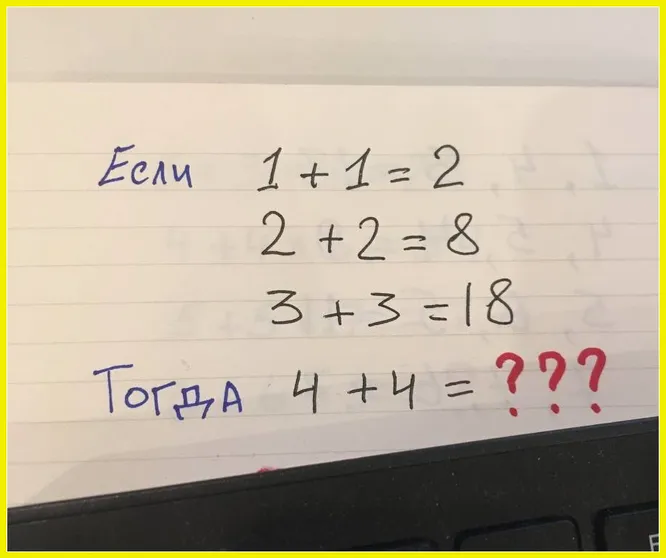 Если 1 + 1 = 2
2 + 2 = 8
3 + 3 = 18
Тогда 4 + 4 = ???